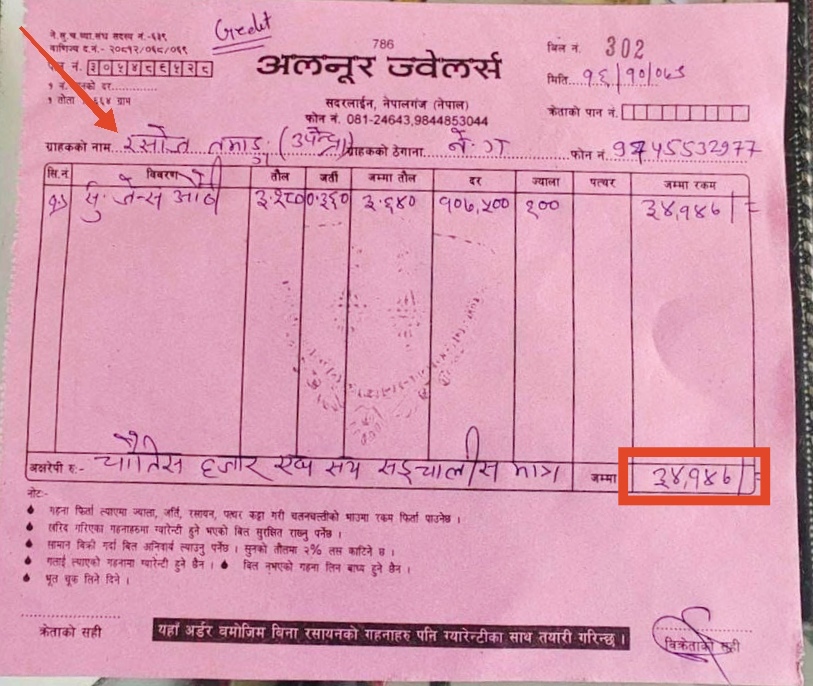 ने.सु.च.व्या.संघ सदस्य नं.-६३९
Credit
786
बिल नं. 302
वाणिज्य द.नं.- २०८१२/०६८/०६९
अलनूर ज्वेलर्स
पान नं. ३०५४८६५२८
मिति १६/१०/०७३
१ नं. को दर
१ तोला ग्राम
सदरलाईन, नेपालगंज (नेपाल)
क्रेताको पान नं.
फोन नं. 081-24643,9844853044
ग्राहकको नाम (उपेन्द्र) ग्राहकको ठेगाना ने. ग फोन नं. 9745532977
सि.नं विवरण तौल जर्ती जम्मा तौल दर ज्याला पत्थर जम्मा रकम
१) सु. जेन्स औठी ३.२८० ०.३६० ३.६४० १०७,५०० २०० ३४,१४७/=
अक्षरेपी रु:- चौतिस हजार एक सय सड्चालीस मात्र जम्मा ३४,१४७/=
नोट:-
गहना फिर्ता ल्याएमा ज्याला, जर्ति, रसायन, पत्थर कट्टा गरी चलनचल्तीको भाउमा रकम फिर्ता पाउनेछ ।
खरिद गरिएका गहनाहरुमा ग्यारेन्टी हुने भएको बिल सुरक्षित राख्नु पर्नेछ ।
सामान बिक्री गर्दा बिल अनिवार्य ल्याउनु पर्नेछ । सुनको तौलमा २% लस काटिने छ ।
गलाई ल्याएको गहनामा ग्यारेन्टी हुने छैन । बिल नभएको गहना लिन बाध्य हुने छैन ।
भूल चूक लिने दिने ।
क्रेताको सही
यहाँ अर्डर बमोजिम बिना रसायनको गहनाहरु पनि ग्यारेन्टीका साथ तयारी गरिन्छ ।
विक्रेताको सही